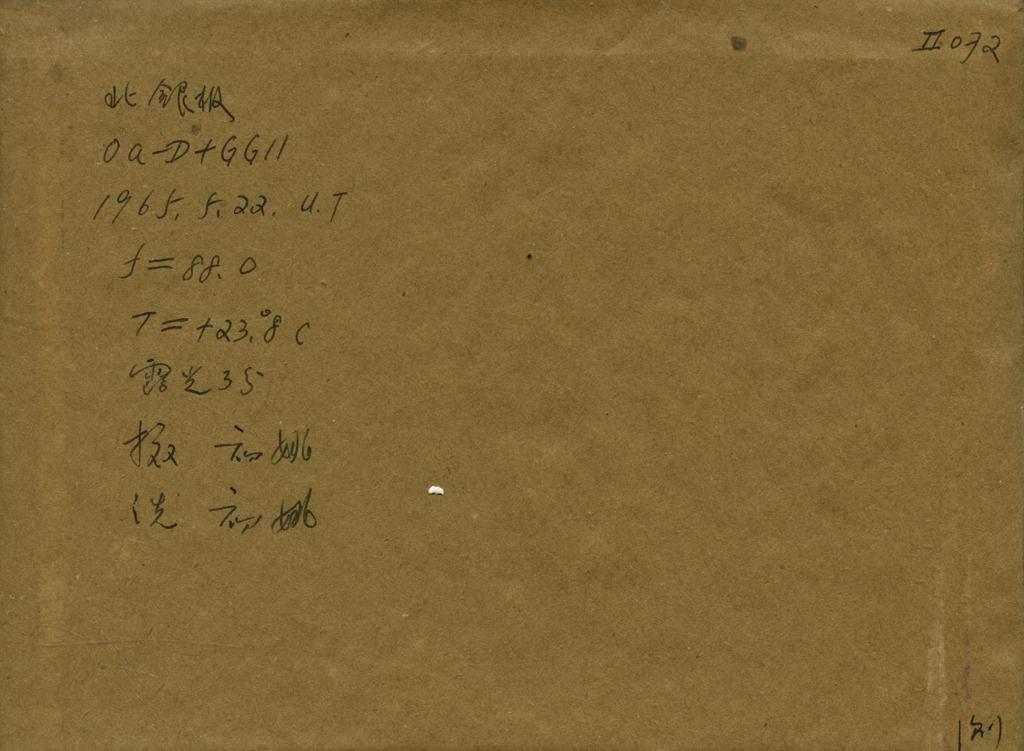 II 072
北 銀极
Oa-D+GG11
1965. 5. 22. U.T
f=88.0
T=+23.°8 C
露光3分
摄 初姚
洗 初姚